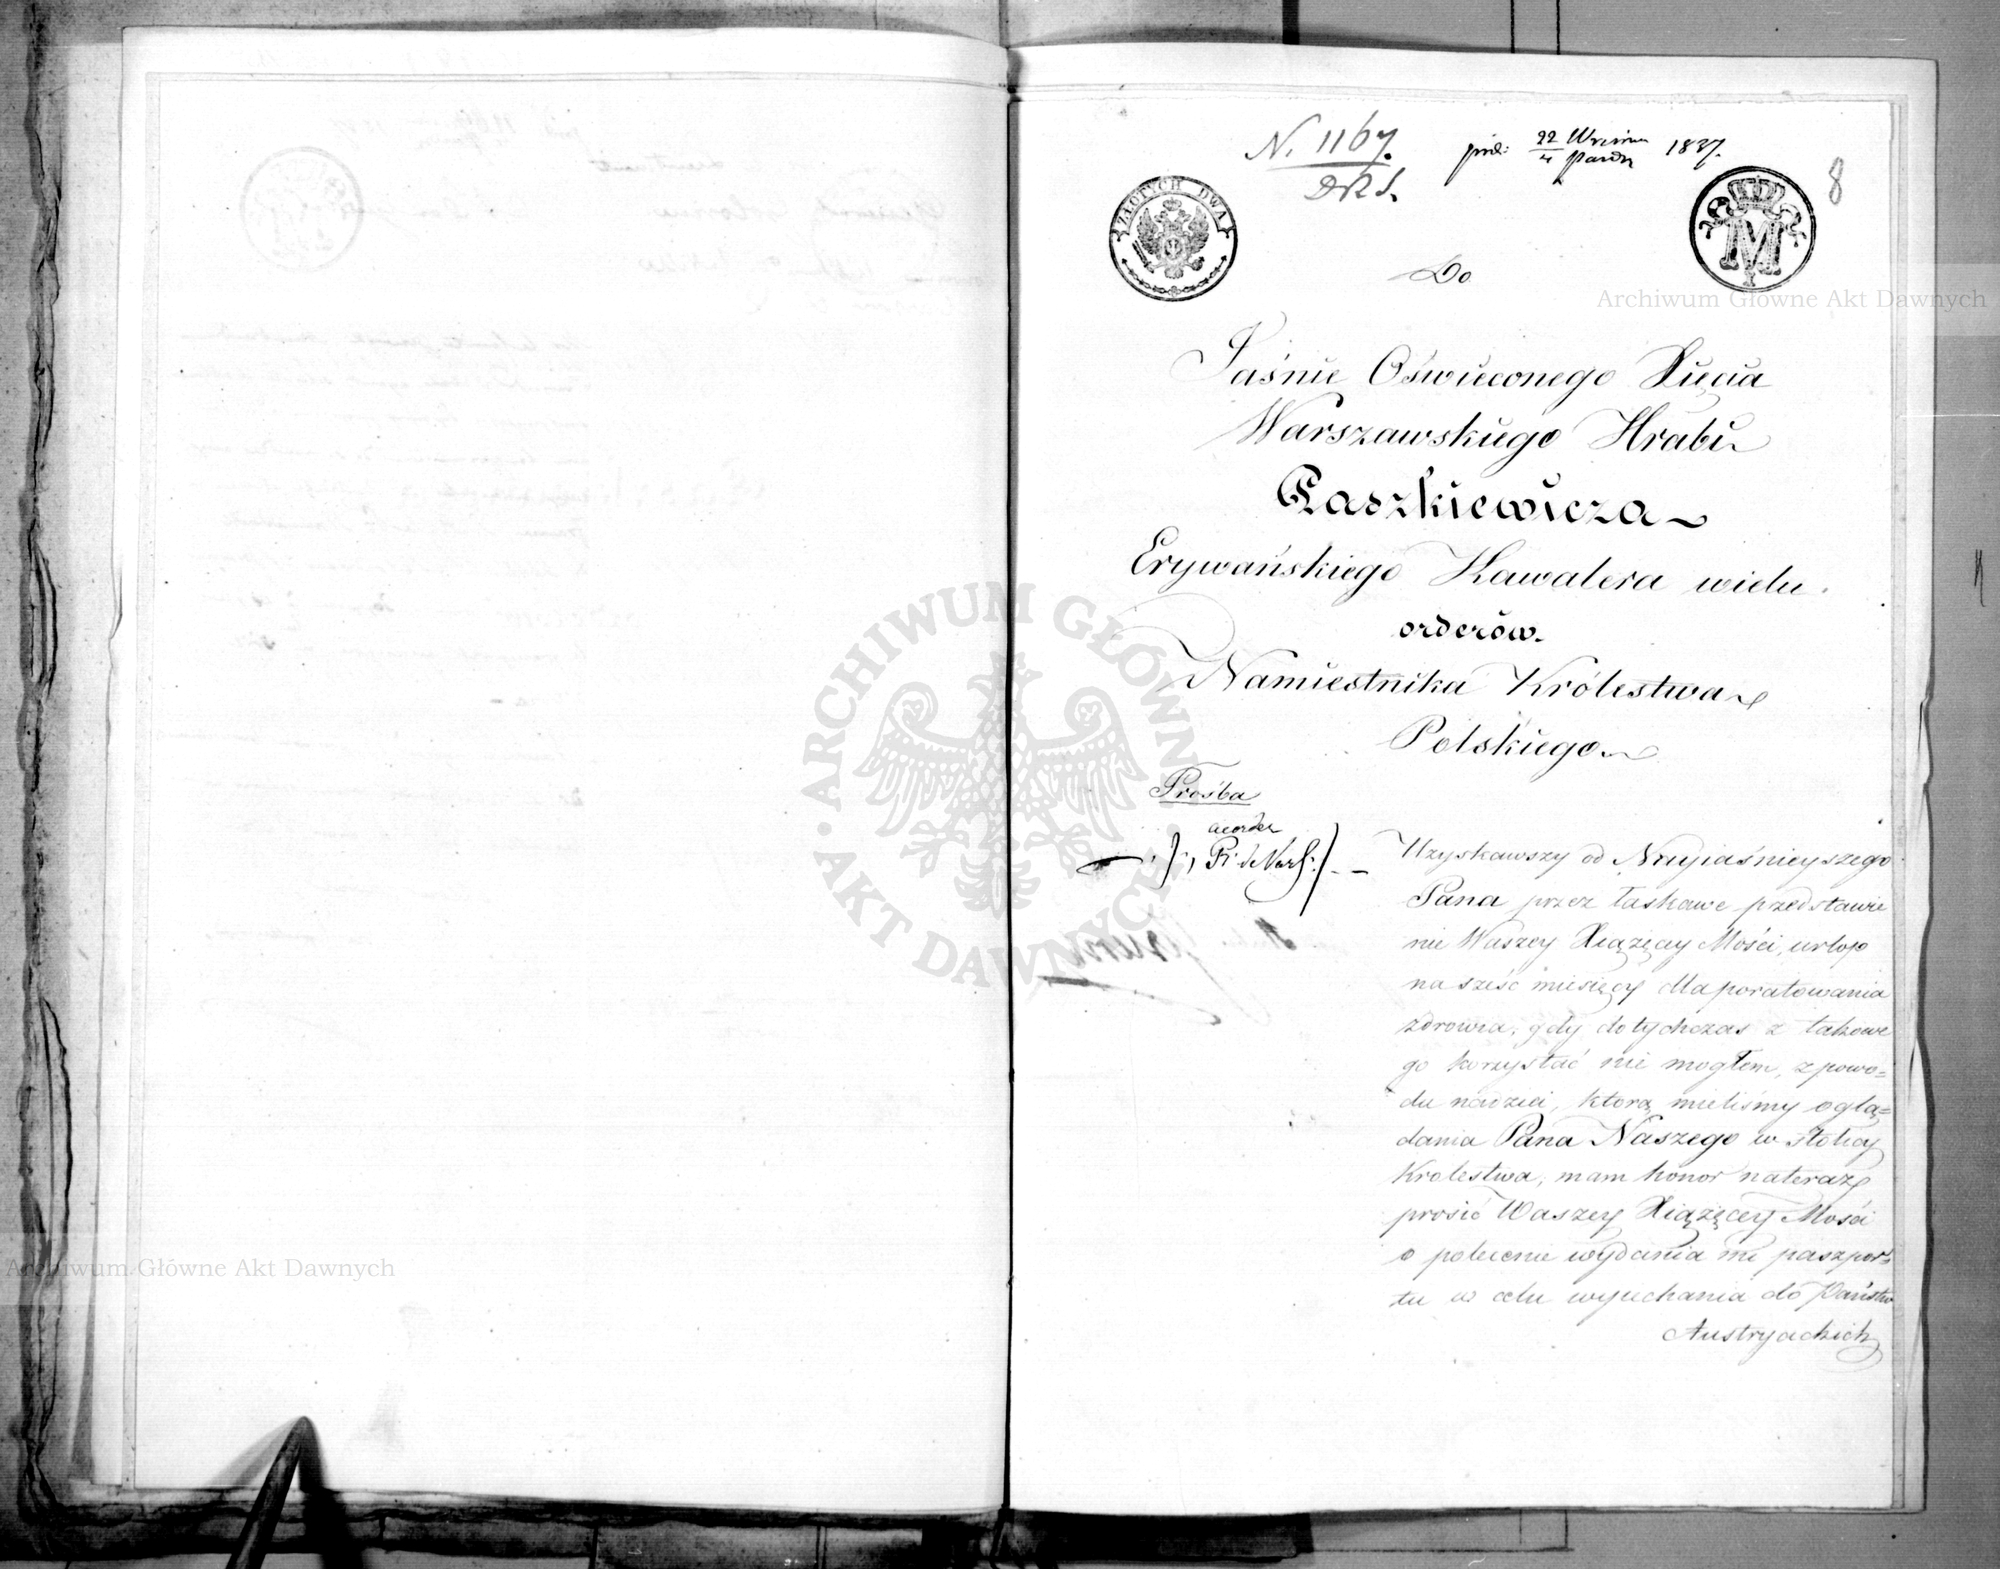 N. 1167.
22 Wrześn
4 Paźdz
1837.
8
ZŁOTYCH DWA
M
Do
Jaśnie Oświeconego Xięcia
Warszawskiego Hrabi
Paszkiewicza
Erywańskiego Kawalera wielu
orderów.
Namiestnika Królestwa
Polskiego
Prośba
Uzyskawszy od Nayiaśnieyszego
Pana przez łaskawe przedstawie
nie Waszey Xiążęcey Mości, urlop
na sześć miesięcy dla poratowania
zdrowia, gdy dotychczas z takowe
go korzystać nie mogłem, z powo=
du nadziei, którą mieliśmy oglą=
dania Pana Naszego w stolicy
Królestwa, mam honor nateraz
prosić Waszey Xiążęcey Mości
o polecenie wydania mi paszpor=
tu w celu wyiechania do Państw
Austryackich
Archiwum Główne Akt Dawnych
ARCHIWUM GŁÓWNE AKT DAWNYCH
Archiwum Główne Akt Dawnych